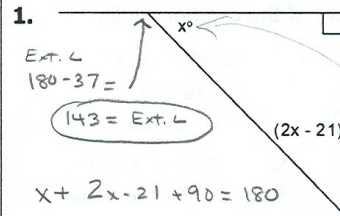 1.
x°
Ext. ∠
180-37=
143 = Ext. ∠
(2x - 21)
x + 2x-21 +90 = 180